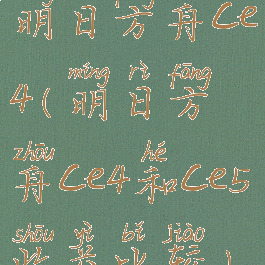 明日方舟Ce
míng rì fāng
4(明日方
zhōu hé
舟Ce4和Ce5
shōu yì bǐ jiào
收益比较)